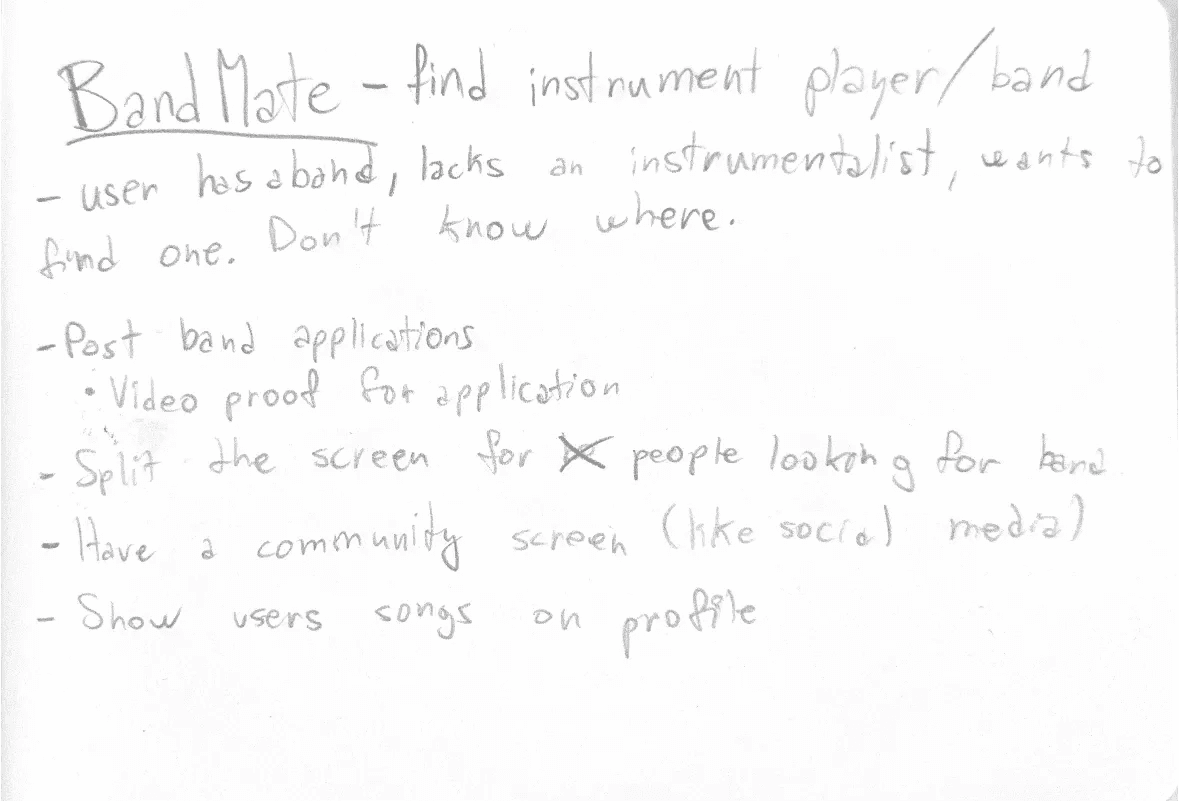 BandMate - find instrument player/band
- user has a band, lacks an instrumentalist, wants to
find one. Don't know where.
- Post band applications
• Video proof for application
- Split the screen for people looking for band
- Have a community screen (like social media)
- Show users songs on profile